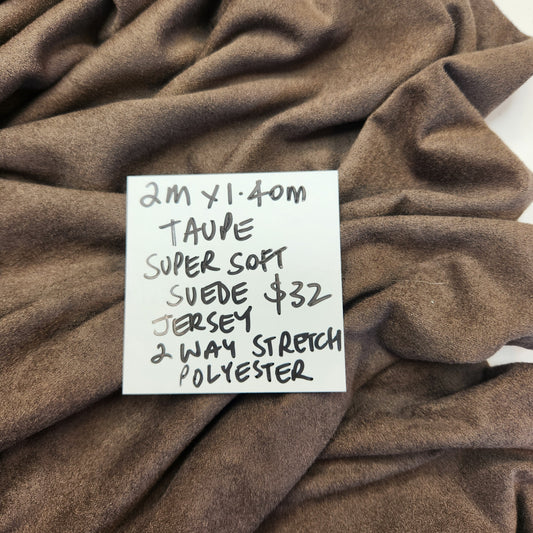 2M X 1.40m
TAUPE
SUPER SOFT
SUEDE $32
JERSEY
2 WAY STRETCH
POLYESTER